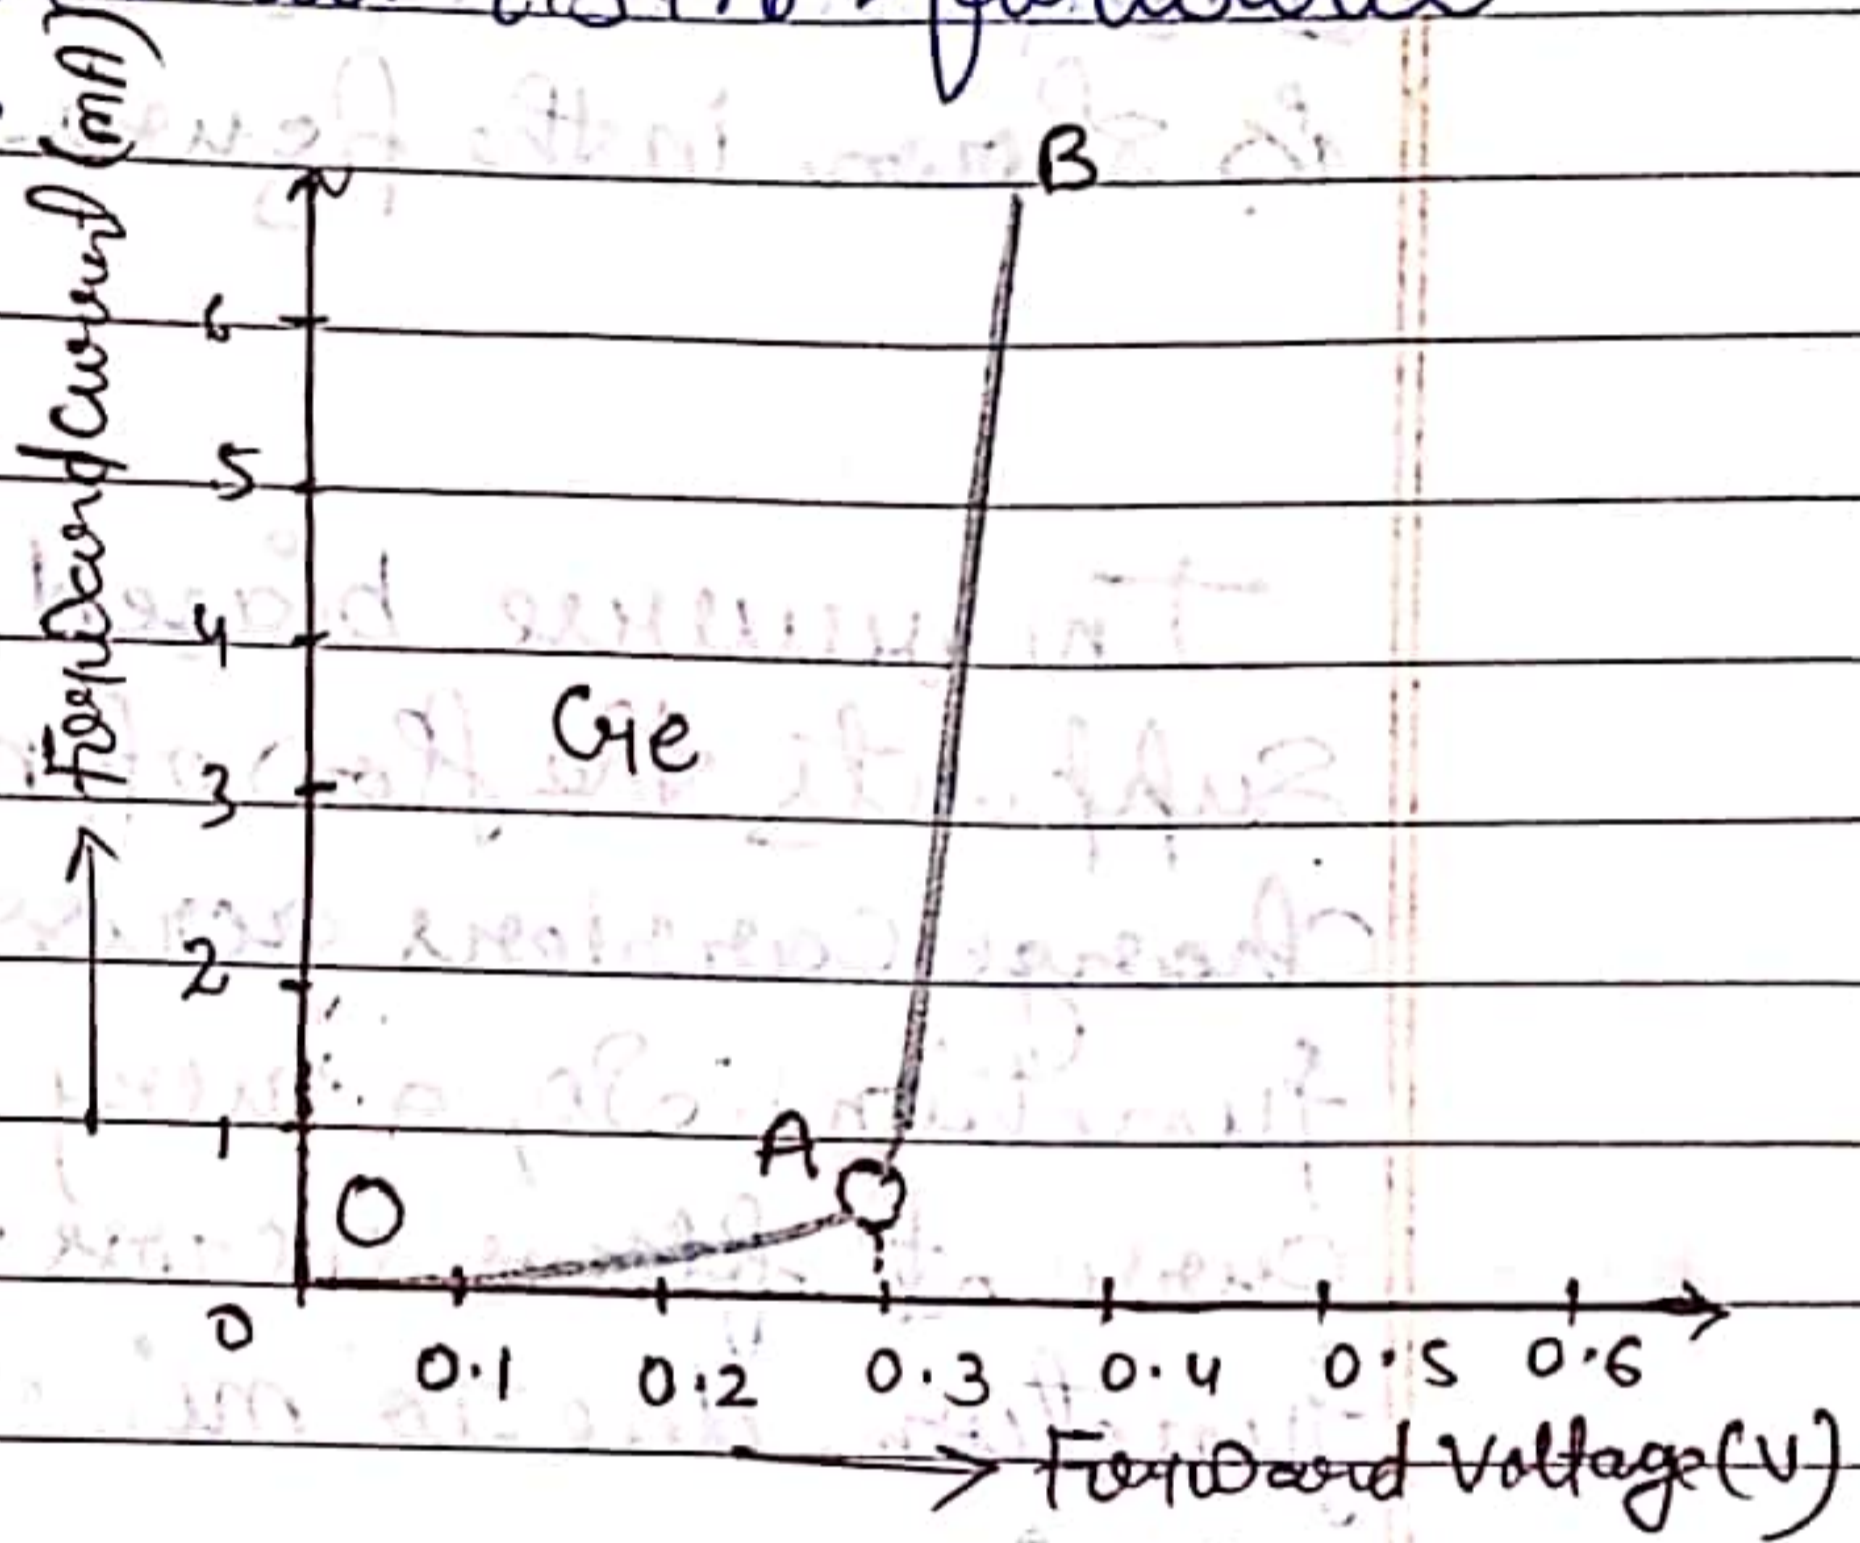 B
Forward Current (mA)
6
5
4
Ge
3
2
1
A
O
0
0.1 0.2 0.3 0.4 0.5 0.6
Forward Voltage (V)